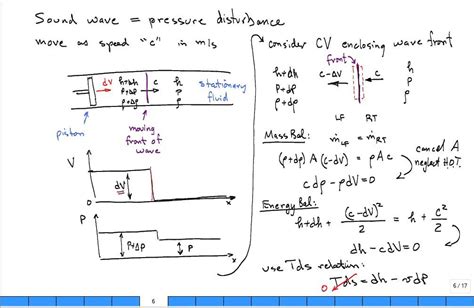 Sound wave = pressure disturbance
move as speed "c" in m/s
dV
h+dh
p+Δp
ρ+Δρ
c
h
p
ρ
stationary
fluid
piston
moving
front of
wave
V
dV
0
x
P
P+ΔP
P
x
consider CV enclosing wave front
front
h+dh
P+dp
ρ+dρ
c-ΔV
c
h
P
ρ
LF RT
Mass Bal: ṁLF = ṁRT
(ρ+dρ) A (c-dV) = ρAc
cancel A
neglect H.O.T.
c dρ - ρdV = 0
Energy Bal:
h+dh + (c-dV)²/2 = h + c²/2
dh - cdV = 0
use Tds relation:
0 Tds = dh - vdp
6
6 / 17